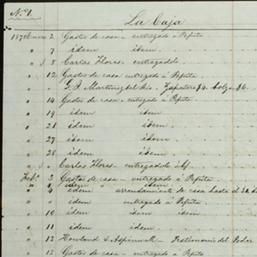 Nº 1.
La Caja
1870 Enero 2. Gastos de casa - entregado á Pepita
" 7 idem idem
" 8 Carlos Flores - entregadole
" 12 Gastos de casa entregado á Pepita
" " G. P. Martinez del Rio - Zapatero $4.
" 14 Gastos de casa - entregado á Pepita
" 19 idem idem
" 21 idem idem
" 27 idem idem
" 28 idem idem
" " Carlos Flores - entregadole
Feb° 2 Gastos de casa - entregado á Pepita
" idem idem
" idem arrendamiento de casa hasta el
" " idem entregado á Pepita
" 10 idem idem idem
" 11 idem idem
" 12 Howland & Aspinwall - Testimonio del Poder
" 12 Gastos de casa - entregado á Pepita